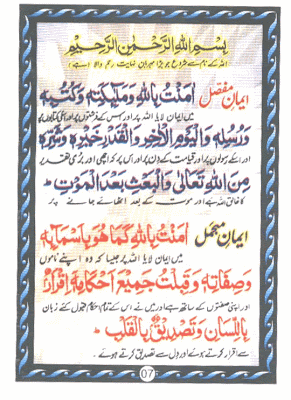 بِسْمِ اللهِ الرَّحْمٰنِ الرَّحِيْمِ
اللہ کے نام سے شروع جو بڑا مہربان نہایت رحم والا ہے
ایمان مفصل اٰمَنْتُ بِاللهِ وَمَلٰٓئِكَتِهٖ وَكُتُبِهٖ
میں ایمان لایا اللہ پر اور اس کے فرشتوں پر اور اس کی کتابوں پر
وَرُسُلِهٖ وَالْيَوْمِ الْاٰخِرِ وَالْقَدْرِ خَيْرِهٖ وَشَرِّهٖ
اور اسکے رسولوں پر اور قیامت کے دن پر اور اس پر کہ اچھی اور بری تقدیر
مِنَ اللهِ تَعَالٰى وَالْبَعْثِ بَعْدَ الْمَوْتِ
کا خالق اللہ ہے اور موت کے بعد اٹھائے جانے پر
ایمان مجمل اٰمَنْتُ بِاللهِ كَمَا هُوَ بِاَسْمَآئِهٖ
میں ایمان لایا اللہ پر جیسا کہ وہ اپنے ناموں
وَصِفَاتِهٖ وَقَبِلْتُ جَمِيْعَ اَحْكَامِهٖ اِقْرَارٌ
اور اپنی صفتوں کے ساتھ ہے اور میں نے اس کے تمام احکام قبول کئے زبان
بِاللِّسَانِ وَتَصْدِيْقٌ بِالْقَلْبِ
سے اقرار کرتے ہوئے اور دل سے تصدیق کرتے ہوئے
07